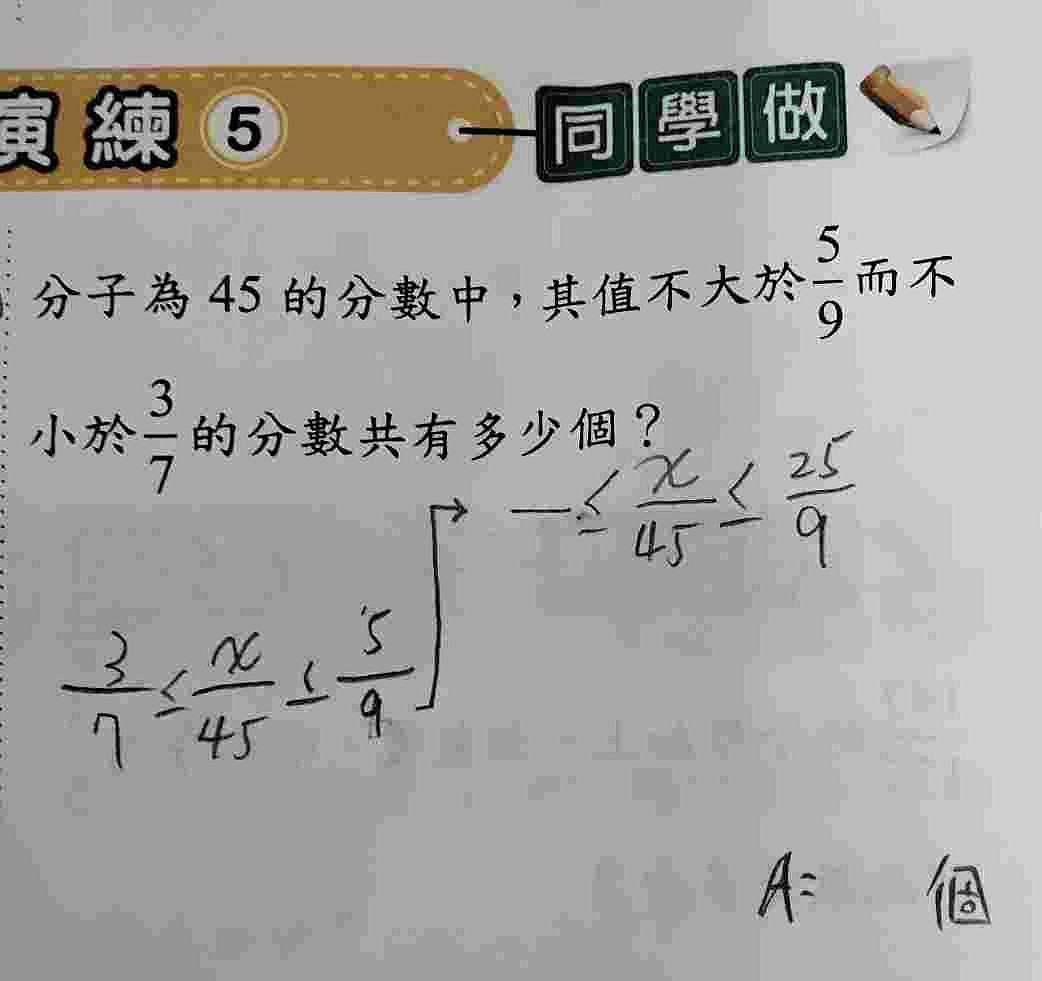 演練 5 同學做
分子為 45 的分數中，其值不大於 5/9 而不
小於 3/7 的分數共有多少個？
— ≤ x/45 ≤ 25/9
3/7 ≤ x/45 ≤ 5/9
A= 個